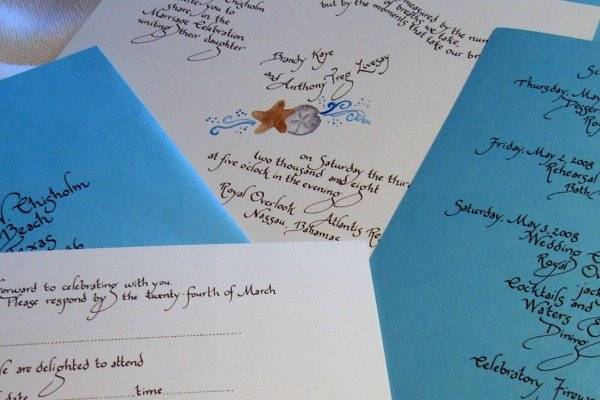 Chisholm
you to
share in the
Marriage Celebration
uniting their daughter
measured by the num
of breaths we take,
but by the moments that take our br
Brandy Kaye Lovesay
and Anthony Greg
on Saturday the third
two thousand and eight
at five o'clock in the evening
Royal Overlook Atlantis Ro
Nassau, Bahamas
Chisholm
Beach
Texas
forward to celebrating with you.
Please respond by the twenty-fourth of March
We are delighted to attend
date time
Thursday, May
Friday, May 2, 2008
Rehearsal
Bath
Saturday, May 3, 2008
Wedding
Royal Ov
jack
Cocktails and
Waters E
Dining
Celebratory Firew